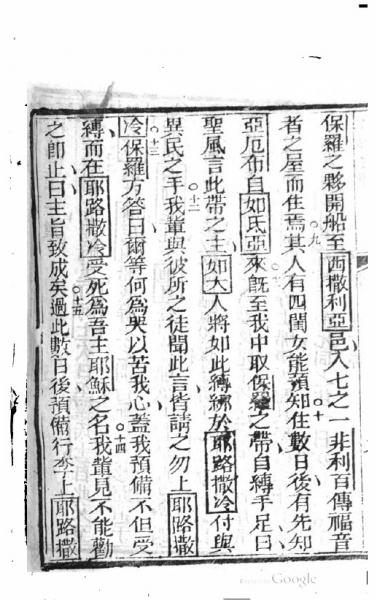 保羅之夥開船至西撒利亞邑入七之一非利百傳福音
者之屋而住焉○九其人有四閨女能預知○十住數日後有先知
亞厄布自如氏亞來○既至我中取保羅之帶自縛手足曰
聖風言此帶之主如大人將如此縛綁於耶路撒冷付與
異民之手○十二我黨與彼所之徒聞此言皆請之勿上耶路撒
冷○十三保羅方答曰爾等何為哭以苦我心蓋我預備不但受
縛而在耶路撒冷受死為吾主耶穌之名○十四我黨見不能勸
之即止曰主旨致成矣○十五過此數日後預備行李上耶路撒
Google